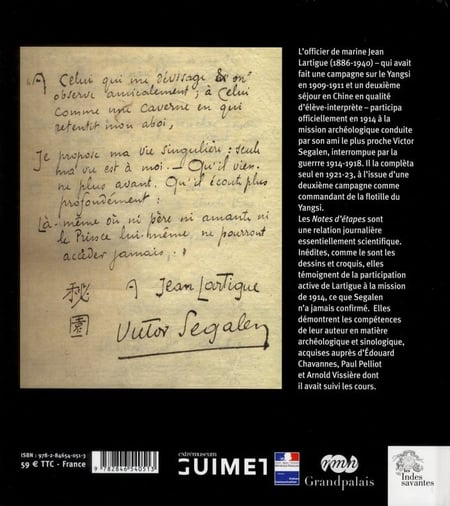 A Celui qui me dévisage & m'
observe amicalement ; à Celui
Comme une caverne en qui
retentit mon aboi,
Je propose ma vie singulière : seule
ma vie est à moi. — Qu'il vien-
ne plus avant. Qu'il écoute plus
profondément :
Là-même où ni père ni amante, ni
le Prince lui-même, ne pourront
accéder jamais.
A Jean Lartigue
秘
園
Victor Segalen
L'officier de marine Jean
Lartigue (1886-1940) – qui avait
fait une campagne sur le Yangsi
en 1909-1911 et un deuxième
séjour en Chine en qualité
d'élève-interprète – participa
officiellement en 1914 à la
mission archéologique conduite
par son ami le plus proche Victor
Segalen, interrompue par la
guerrre 1914-1918. Il la complèta
seul en 1921-23, à l'issue d'une
deuxième campagne comme
commandant de la flotille du
Yangsi.
Les Notes d'étapes sont
une relation journalière
essentiellement scientifique.
Inédites, comme le sont les
dessins et croquis, elles
témoignent de la participation
active de Lartigue à la mission
de 1914, ce que Segalen
n'a jamais confirmé. Elles
démontrent les compétences
de leur auteur en matière
archéologique et sinologique,
acquises auprès d'Édouard
Chavannes, Paul Pelliot
et Arnold Vissière dont
il avait suivi les cours.
ISBN : 978-2-84654-051-3
59 € TTC - France
9 782846 540513
GUIMET
rmn
Grandpalais
les
Indes
savantes